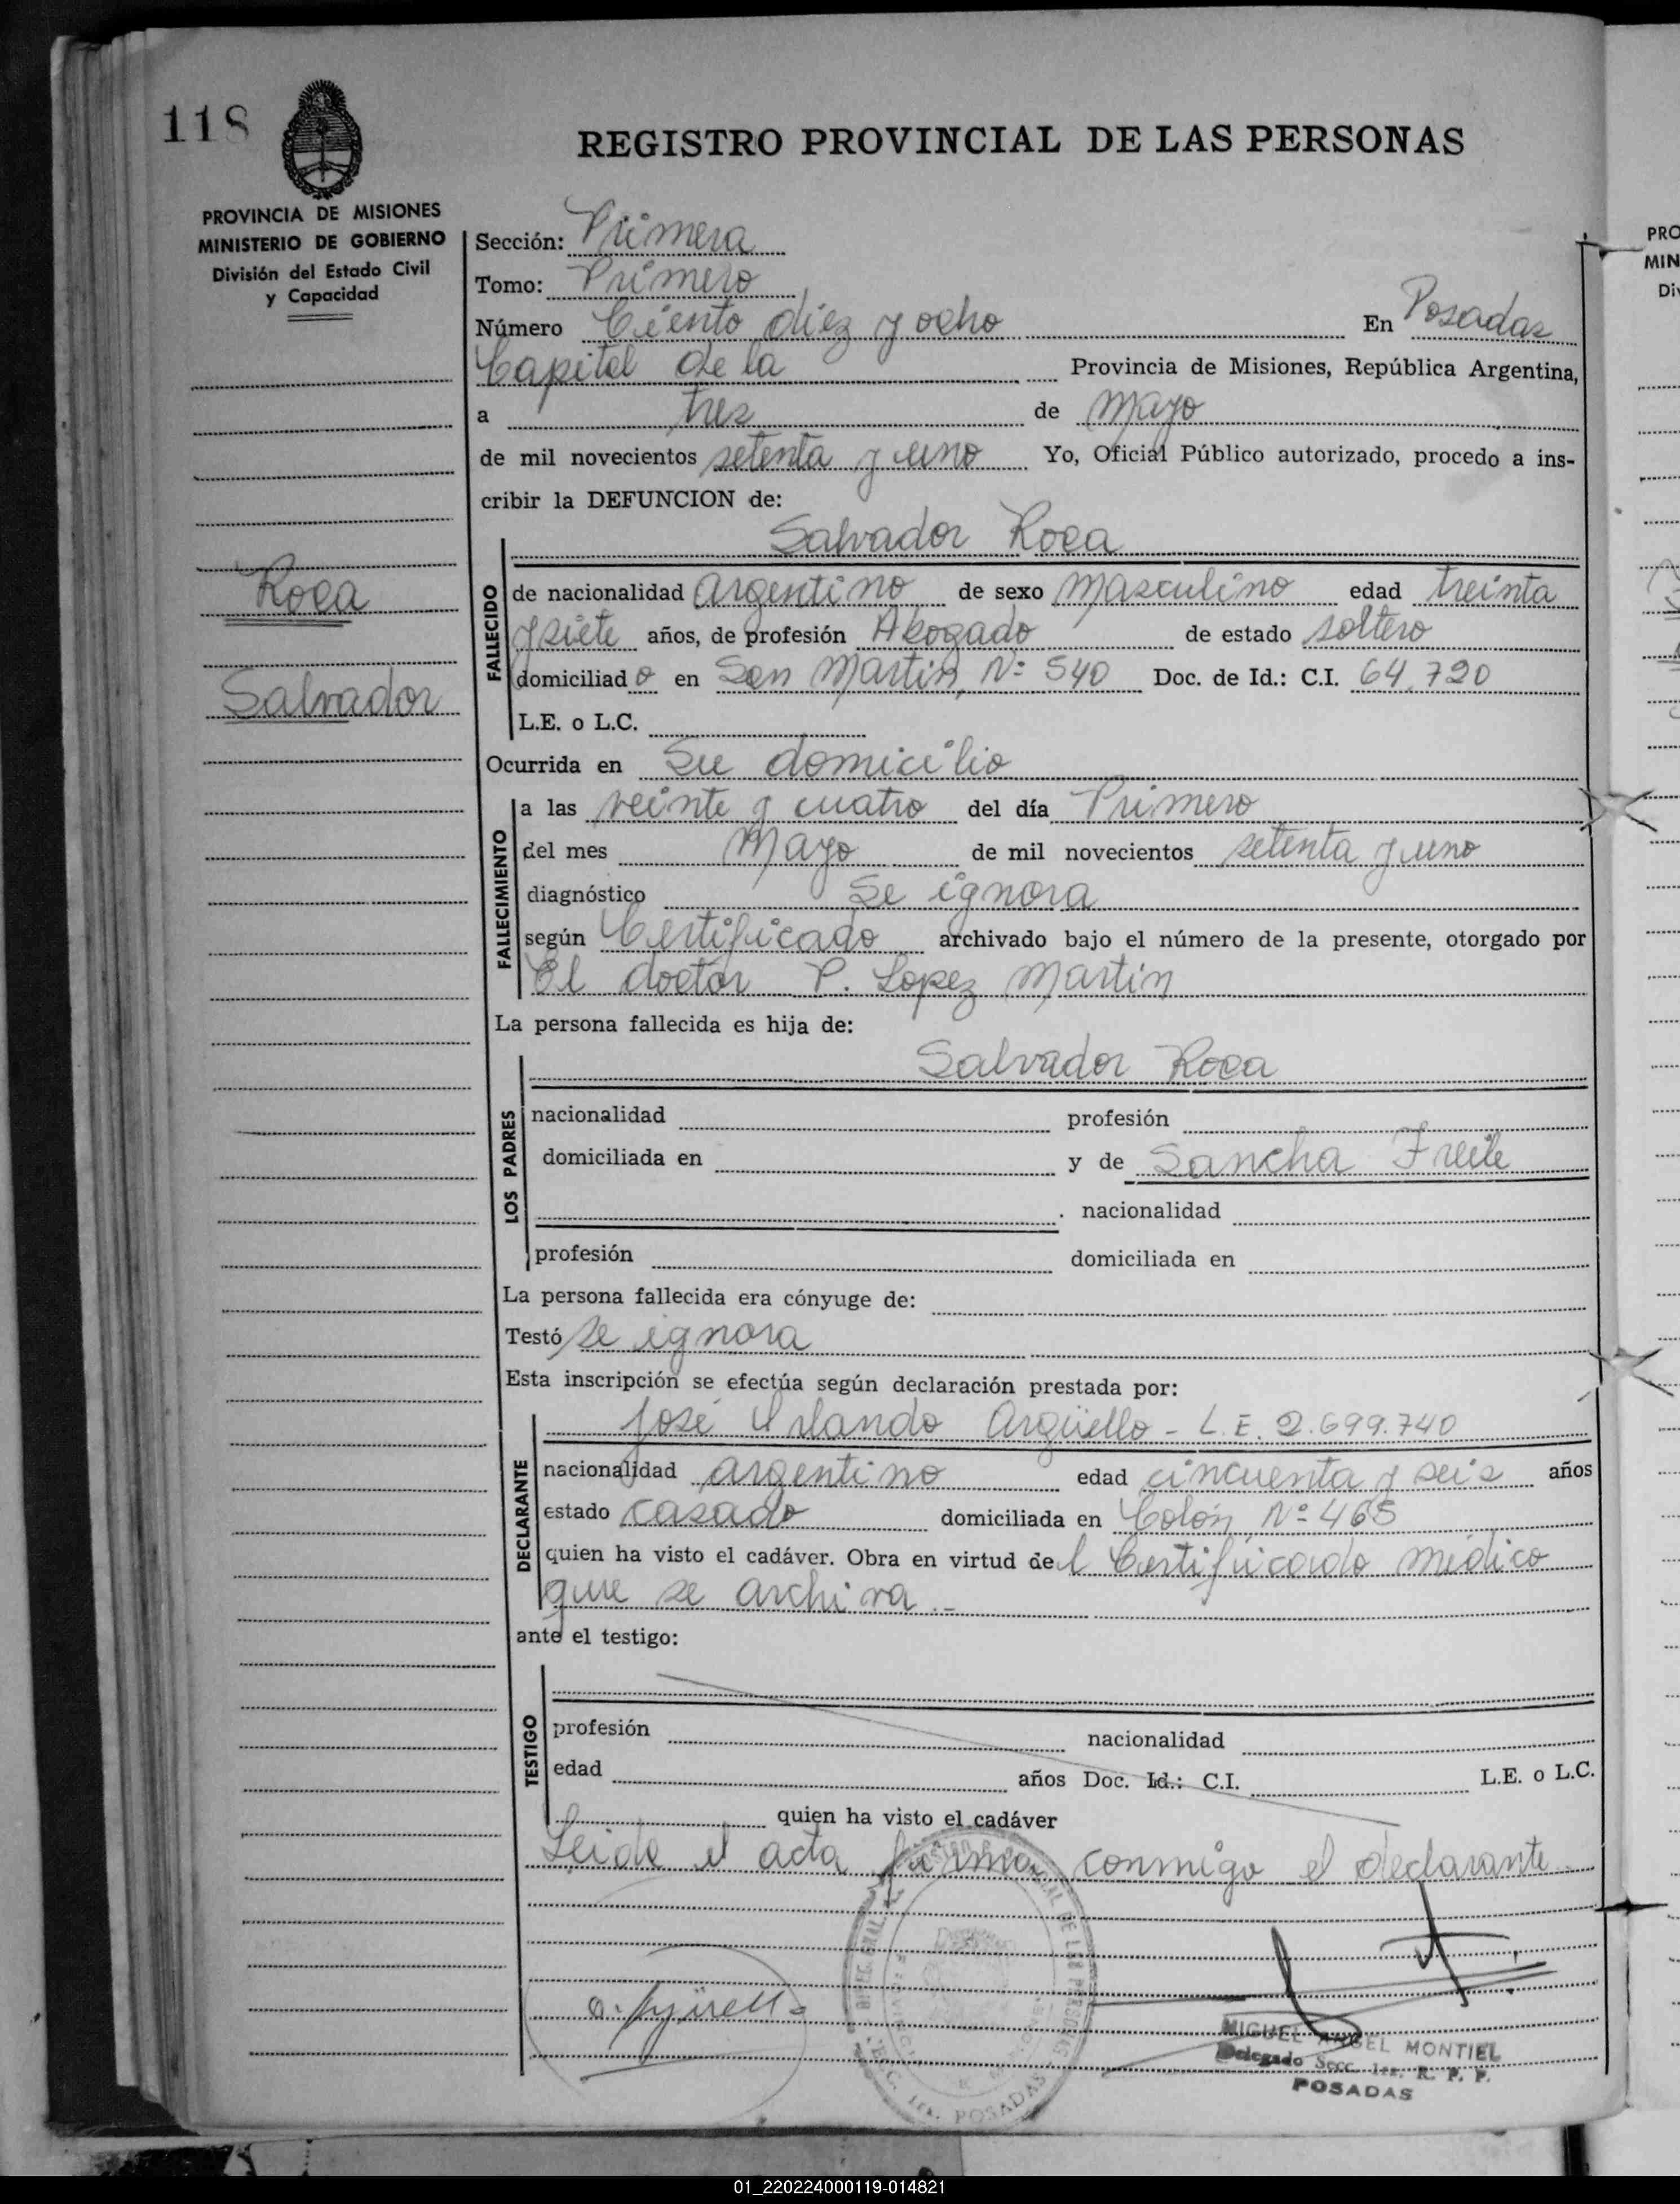 118
REGISTRO PROVINCIAL DE LAS PERSONAS
PROVINCIA DE MISIONES
MINISTERIO DE GOBIERNO
División del Estado Civil
y Capacidad
Roca
Salvador
Sección: Primera
Tomo: Primero
Número Ciento diez y ocho En Posadas
Capital de la Provincia de Misiones, República Argentina,
a tres de Mayo
de mil novecientos setenta y uno Yo, Oficial Público autorizado, procedo a ins-
cribir la DEFUNCION de:
Salvador Roca
FALLECIDO
de nacionalidad argentino de sexo masculino edad treinta
y siete años, de profesión Abogado de estado soltero
domiciliado en San Martin, Nº 540 Doc. de Id.: C.I. 64.720
L.E. o L.C.
Ocurrida en Su domicilio
FALLECIMIENTO
a las veinte y cuatro del día Primero
del mes Mayo de mil novecientos setenta y uno
diagnóstico Se ignora
según Certificado archivado bajo el número de la presente, otorgado por
El doctor P. Lopez Martin
La persona fallecida es hija de:
LOS PADRES
Salvador Roca
nacionalidad profesión
domiciliada en y de Sancha Freile
nacionalidad
profesión domiciliada en
La persona fallecida era cónyuge de:
Testó se ignora
Esta inscripción se efectúa según declaración prestada por:
DECLARANTE
José Orlando Argüello - L.E. 2.699.740
nacionalidad argentino edad cincuenta y seis años
estado casado domiciliada en Colón Nº 465
quien ha visto el cadáver. Obra en virtud del Certificado médico
que se archiva.-
ante el testigo:
TESTIGO
profesión nacionalidad
edad años Doc. Id.: C.I. L.E. o L.C.
quien ha visto el cadáver
Leida el acta firma conmigo el declarante.
MIGUEL ANGEL MONTIEL
Delegado Secc. 1ra. R. P. P.
POSADAS
01_220224000119-014821